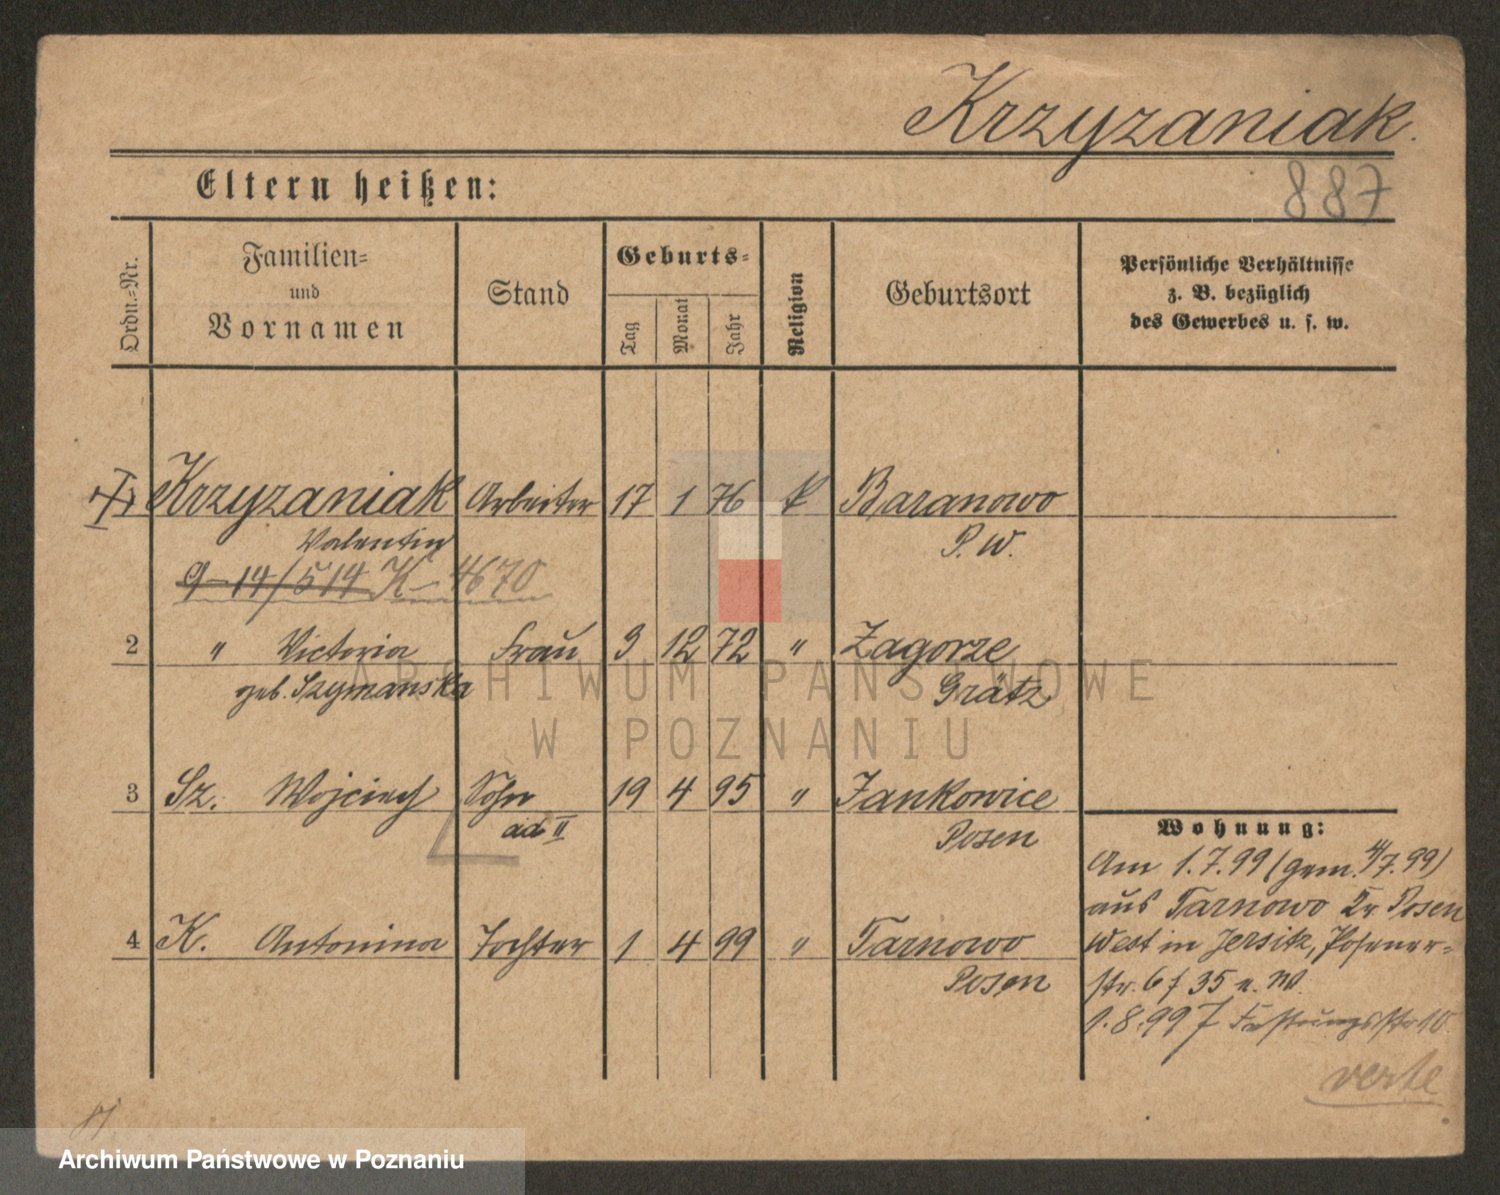 Krzyzaniak.
887
Eltern heißen:
Ordn.-Nr.
Familien-
und
Vornamen
Stand
Geburts-
Tag
Monat
Jahr
Religion
Geburtsort
Persönliche Verhältnisse
z. B. bezüglich
des Gewerbes u. s. w.
Krzyzaniak Arbeiter 17 1 76 k Baranowo
Valentin P. W.
9-14/514 K-4670
2 " Victoria Frau 3 12 72 " Zagorze
geb. Szymanska Grätz
3 Sz. Wojciech Sohn 19 4 95 " Jankowice
ad II Posen
4 K. Antonina Tochter 1 4 99 " Tarnowo
Posen
Wohnung:
Am 1.7.99 (gem. 4/7.99)
aus Tarnowo Kr. Posen
West in Jersitz, Posener-
str. 6 f 35 u. W.
1.8.99 f Festungsstr 10
verte
ARCHIWUM PAŃSTWOWE
W POZNANIU
Archiwum Państwowe w Poznaniu